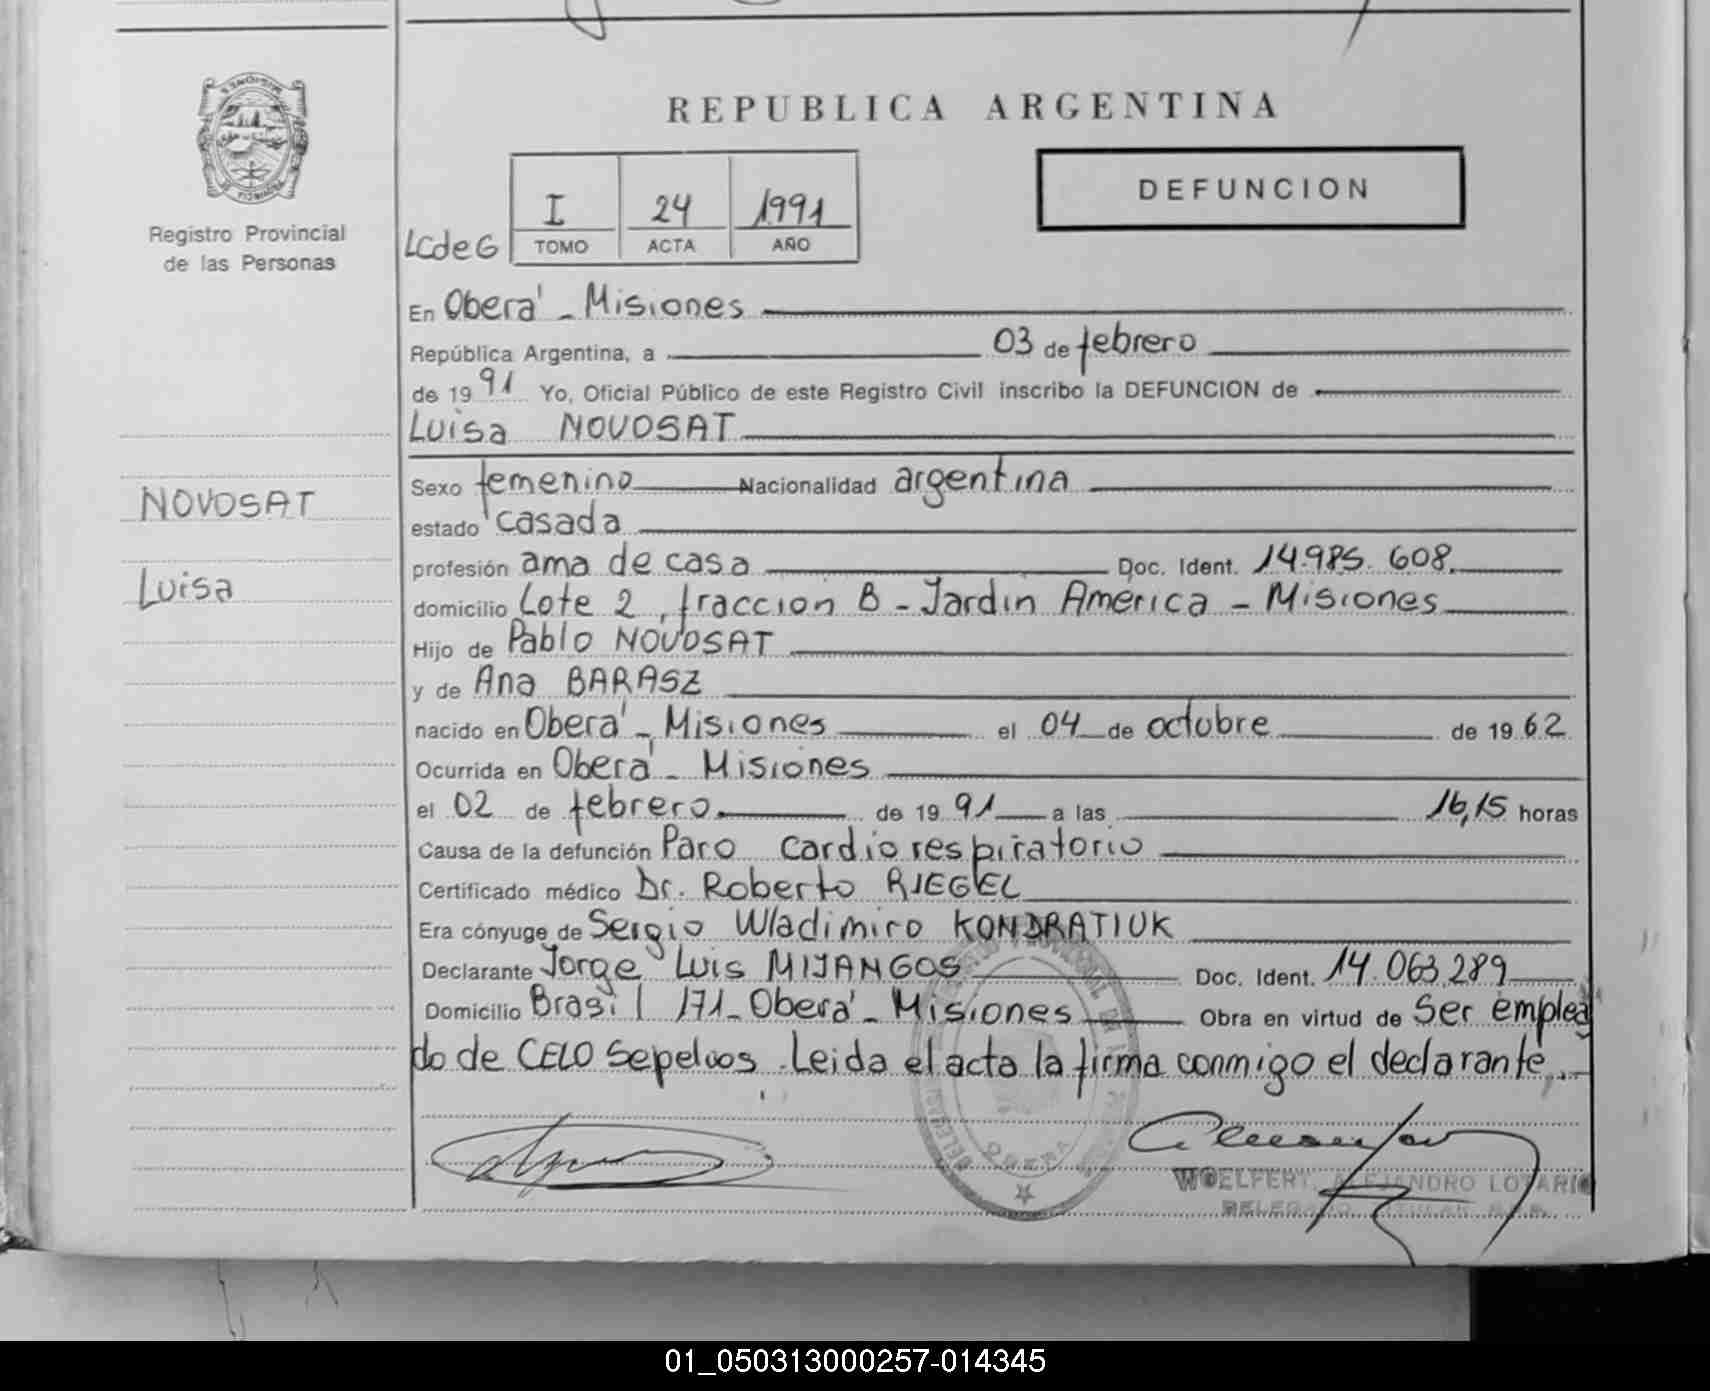 REPUBLICA ARGENTINA
DEFUNCION
I 24 1991
TOMO ACTA AÑO
LCdeG
Registro Provincial
de las Personas
NOVOSAT
Luisa
En Oberá - Misiones
República Argentina, a 03 de febrero
de 19 91 Yo, Oficial Público de este Registro Civil inscribo la DEFUNCION de
Luisa NOVOSAT
Sexo femenino Nacionalidad argentina
estado casada
profesión ama de casa Doc. Ident. 14.985.608.
domicilio Lote 2, fraccion B - Jardin America - Misiones
Hijo de Pablo NOVOSAT
y de Ana BARASZ
nacido en Oberá - Misiones el 04 de octubre de 19 62
Ocurrida en Oberá - Misiones
el 02 de febrero de 19 91 a las 16,15 horas
Causa de la defunción Paro cardiorespiratorio
Certificado médico Dr. Roberto RIEGEL
Era cónyuge de Sergio Wladimiro KONDRATIUK
Declarante Jorge Luis MIJANGOS Doc. Ident. 14.063,289
Domicilio Brasil 171 - Oberá - Misiones Obra en virtud de Ser emplea
do de CELO Sepelios. Leida el acta la firma conmigo el declarante.
OBERA
WOELFERT, ALEJANDRO LOTARIO
DELEGADO TITULAR
01_050313000257-014345